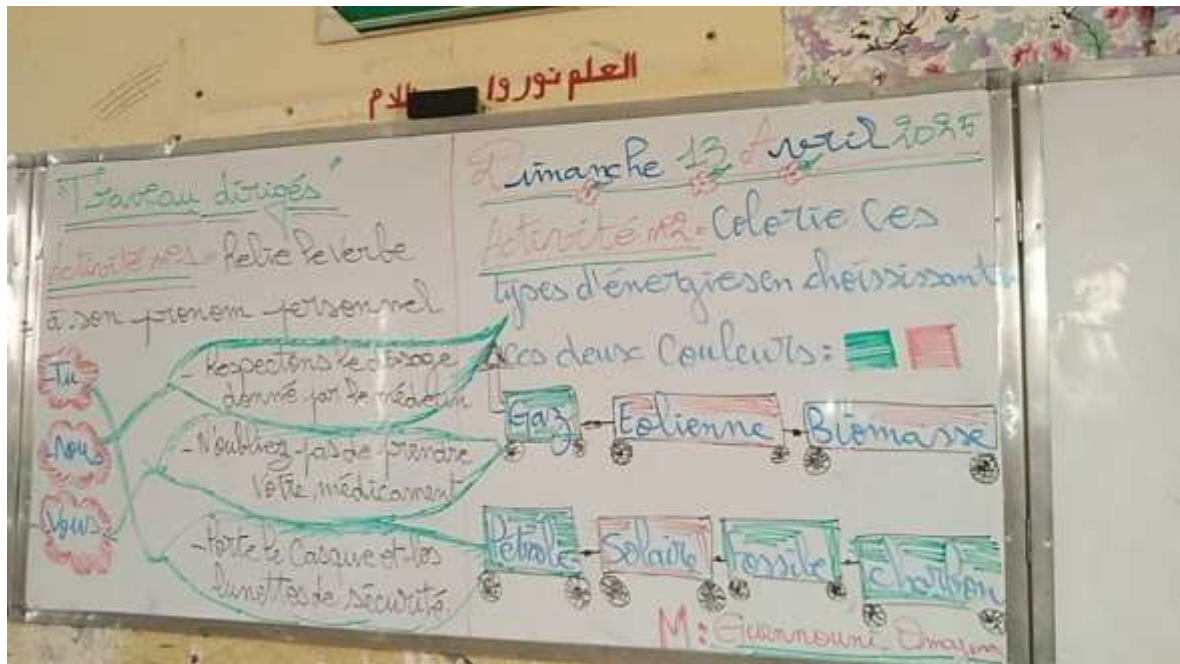 العلم نور وا
"Traveau dirigés"
Activité n°1 = Relie le verbe
à son pronom personnel
Tu
nous
Vous
- Respectons le dosage
donné par le médecin
- N'oubliez pas de prendre
votre médicament
- Porte le Casque et les
lunettes de sécurité.
Dimanche 13 Avril 2025
Activité n°2 = Colorie Ces
types d'énergies en choississant
ces deux Couleurs :
Gaz Eolienne Biomasse
Pétrole Solaire Fossile charbon
M : Guennouni